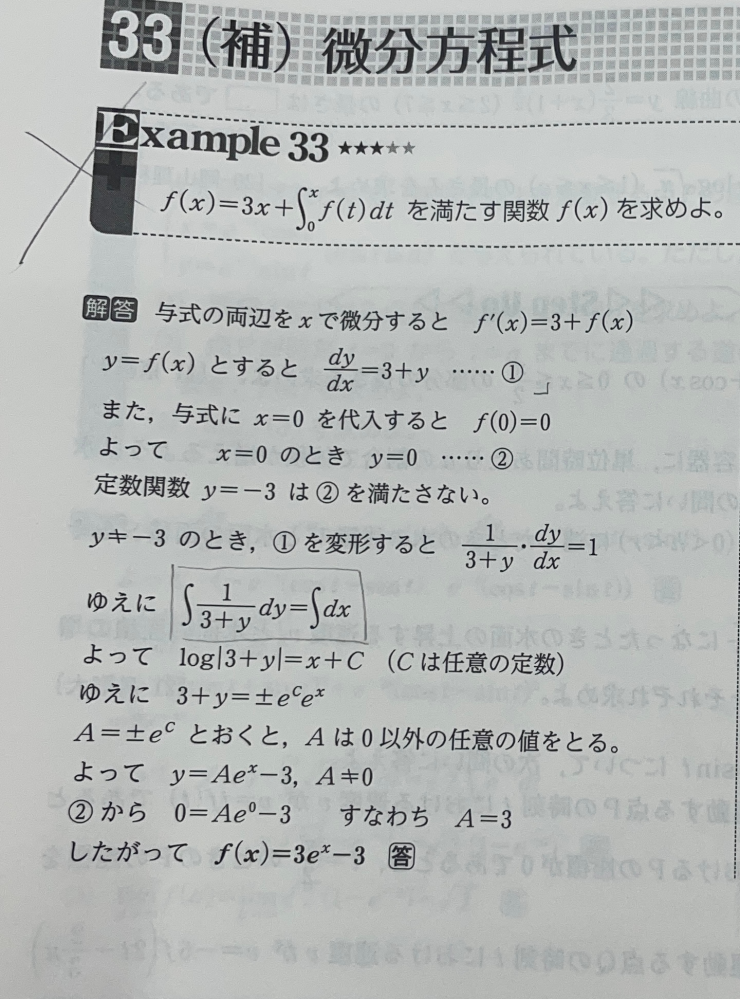 33 (補) 微分方程式
Example 33 ★★★★★
f(x)=3x+∫₀ˣf(t)dt を満たす関数 f(x) を求めよ。
解答 与式の両辺を x で微分すると f′(x)=3+f(x)
y=f(x) とすると dy/dx=3+y ……①
また，与式に x=0 を代入すると f(0)=0
よって x=0 のとき y=0 ……②
定数関数 y=−3 は②を満たさない。
y≠−3 のとき，①を変形すると 1/(3+y)・dy/dx=1
ゆえに ∫1/(3+y) dy=∫dx
よって log|3+y|=x+C (C は任意の定数)
ゆえに 3+y=±eᶜeˣ
A=±eᶜ とおくと，A は 0 以外の任意の値をとる。
よって y=Aeˣ−3, A≠0
②から 0=Ae⁰−3 すなわち A=3
したがって f(x)=3eˣ−3 答